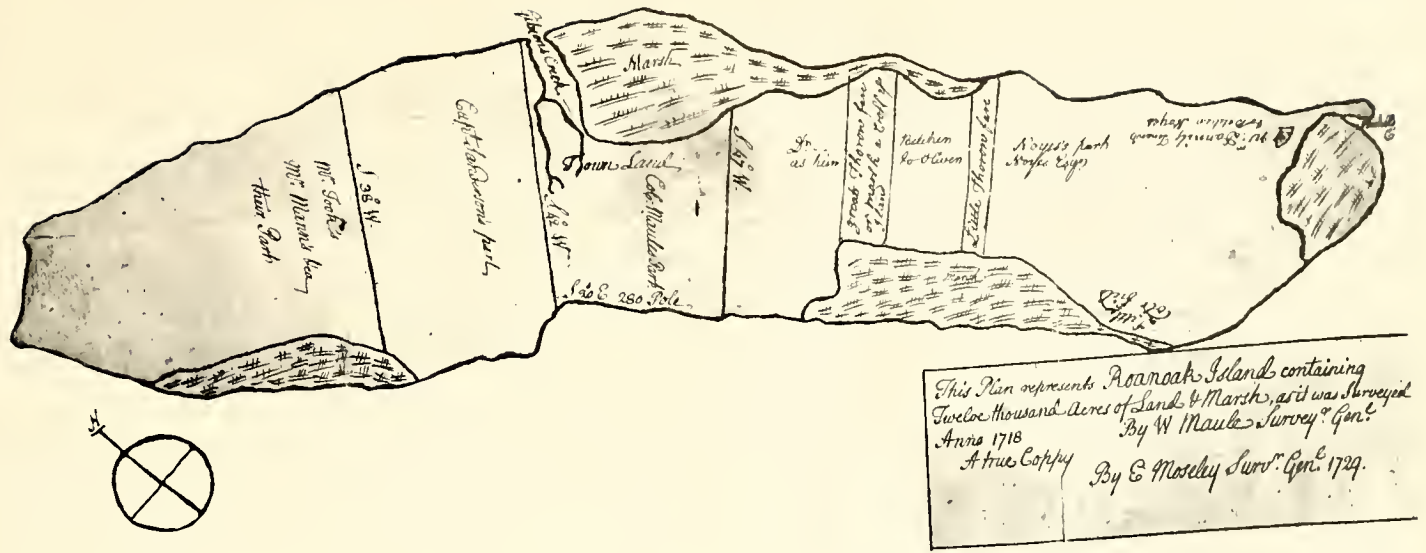 Gibbons Creek
Marsh
Mr. Took's
Mr. Mann's being
their Part
S 38° W.
Capt. Sanderson's part
Town Land
Col. Maules Part
S 42° W
S 20 E 280 Pole
S 47° W
as him
Great Thorow fare
or marsh a Cross ye
Island
to Oliver
Little Thorow fare
Noyes's part
Noyes Esqr.
This Plan represents Roanoak Island containing
Twelve thousand Acres of Land & Marsh, as it was Surveyed
Anno 1718
By W Maule Surveyr. Genl.
A true Coppy
By E Moseley Survr. Genl. 1729.